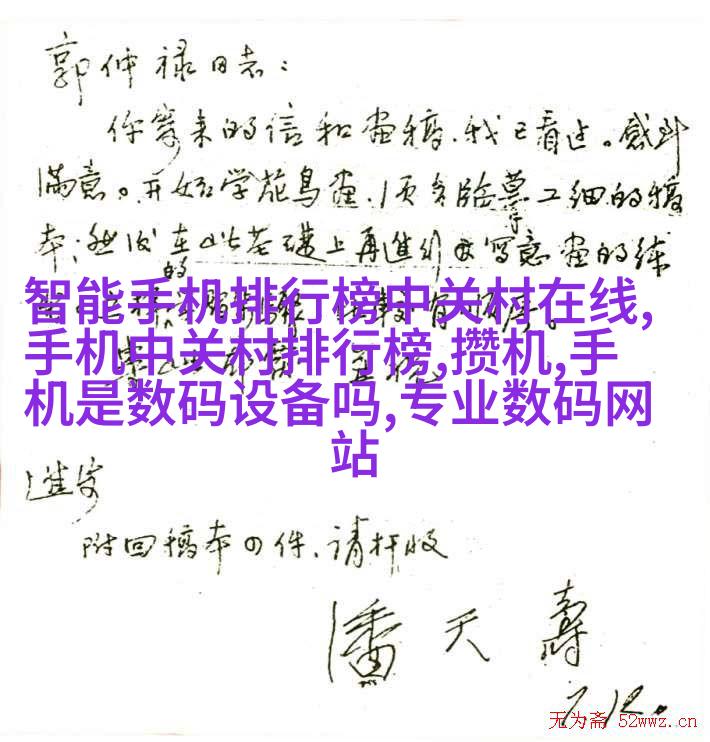 郭仲禄同志：
你寄来的信和画稿，我已看过。感到
满意。开始学花鸟画，须多临摹工细的稿
本；然后在此基础上再进行写意画的练
的
智能手机排行榜中关村在线,
手机中关村排行榜,攒机,手
机是数码设备吗,专业数码网
站
进安
附回稿本四件、请检收
潘天寿
7.12.
无为斋 52wwz.cn